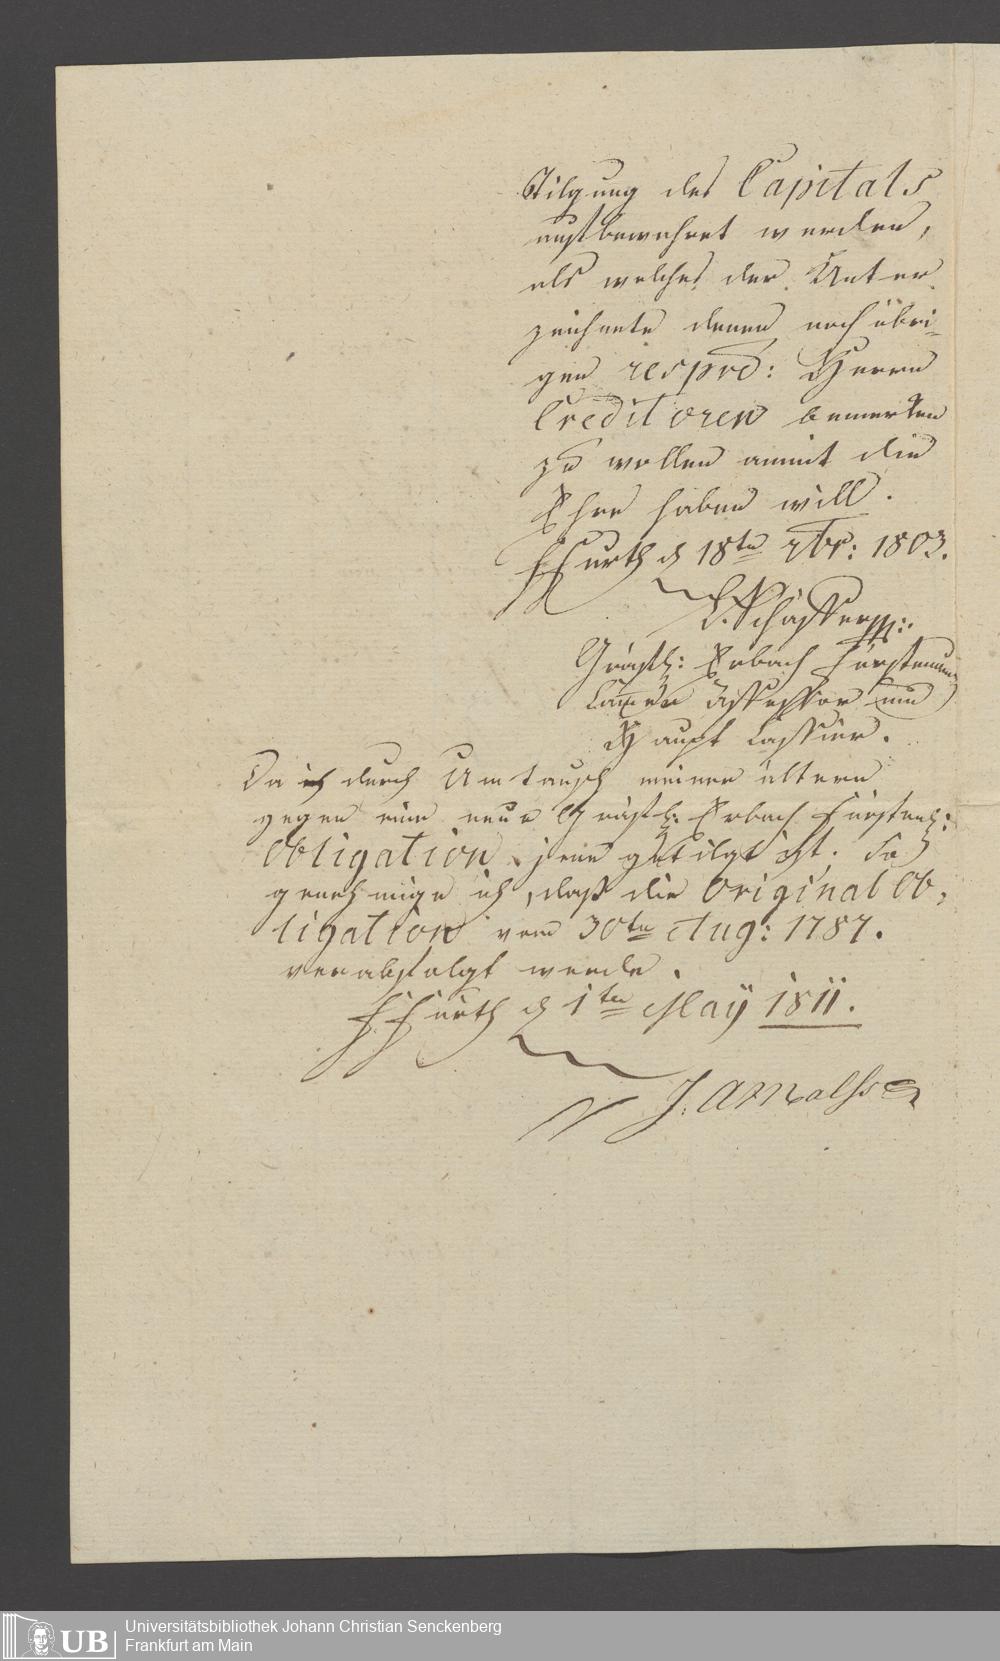 Tilgung des Capitals
aufbewahret werden,
als welches der Unter
zeichnete denen noch übri-
gen resprd: Herrn
Creditoren bemerken
zu wollen anmit die
Ehre haben will.
Ffurth d 18ten 7br: 1803.
Schäffer
Gräfl: Erbach Fürstenau
Camer Assessor und
Haupt Cassier.
Da ich durch Umtausch meiner ältern
gegen eine neue Gräfl: Erbach Fürstenl:
Obligation jene getilgt ist; So
genehmige ich, daß die Original Ob-
ligation vom 30ten Aug: 1787.
verabfolgt werde.
Ffurth d 1ten May 1811.
Universitätsbibliothek Johann Christian Senckenberg
Frankfurt am Main
UB